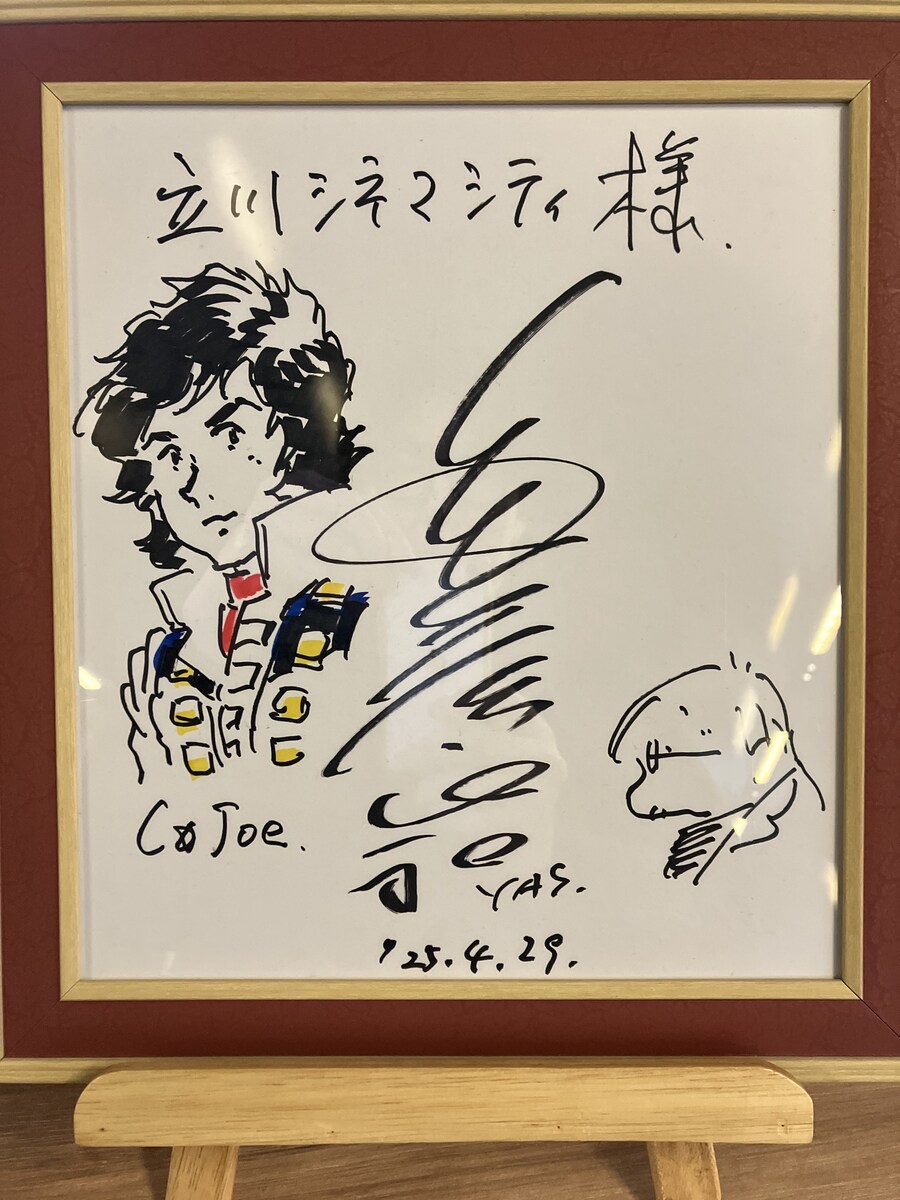 立川シネマシティ様.
C☆Joe.
YAS.
'25.4.29.